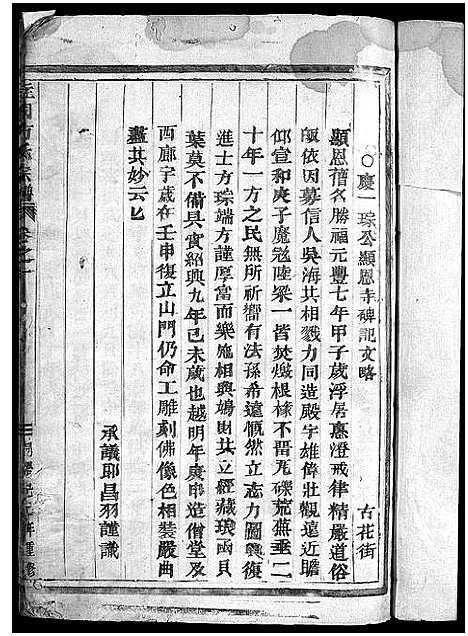 ○慶一琮公顯恩寺碑記文略
古花街
顯恩舊名勝福元豐七年甲子歲浮居惠澄戒律精嚴道俗
皈依因募信人吳海共相戮力同造殿宇雄偉壯觀遠近瞻
仰宣和庚子魔冦陸梁一皆焚燬根椽不畱瓦礫荒蕪垂二
十年一方之民無所祈嚮有法孫希遠慨然立志力圖興復
進士方琮端方謹厚富而樂施相與竭財共立經藏琅函貝
葉莫不備具實紹興九年己未歲也越明年庚申造僧堂及
西廊宇歲在壬申復立山門仍命工雕刻佛像色相裝嚴曲
盡其妙云尒
承議郎昌羽謹識